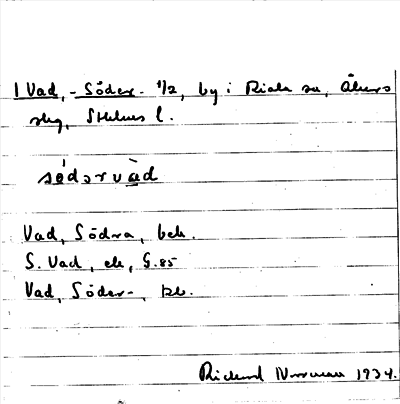 1 Vad, - Söder- 1/2, by i Riala sn, Åkers
skg, Sthlms l.
södərvàd
Vad, Södra, bek.
S. Vad, ek, G.85
Vad, Söder-, kb.
Rickard Norrman 1934.